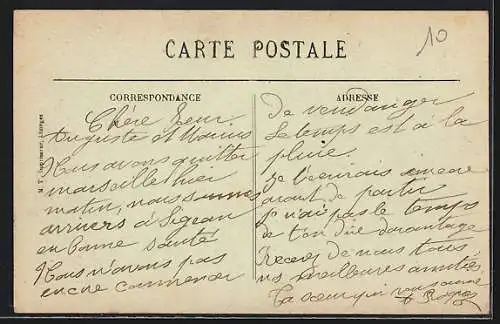 10
CARTE POSTALE
CORRESPONDANCE
Chère Seur
Auguste et Marius
Nous avons quitter
marseille hier
matin, nous sommes
arrivers à Sigean
en bonne santé
Nous n'avons pas
encore commencer
ADRESSE
De vendanger
Le temps est à la
pluie.
Je t'écrirais encore
avant de partir
J'n'ai pas le temps
de t'en dire davantage
Recever de nous tous
nos meilleures amitiés
Ta soeur qui vous aime